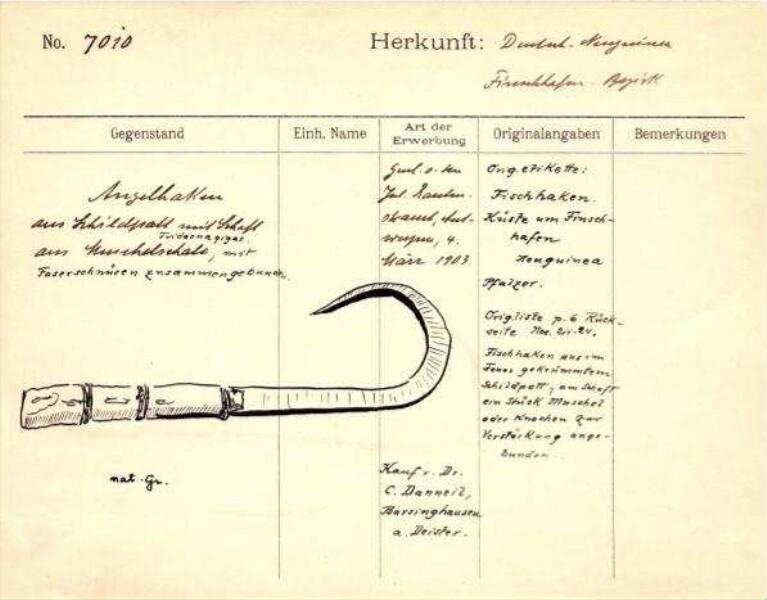 No. 7010
Herkunft: Deutsch-Neuguinea
Finschhafen-Bezirk
Gegenstand
Einh. Name
Art der
Erwerbung
Originalangaben
Bemerkungen
Angelhaken
aus Schildpatt mit Schaft
Tridacna gigas
aus Muschelschale, mit
Faserschnüren zusammengebunden.
Jul. Rauten-
strauch, Ant-
werpen, 4.
März 1903.
Kauf v. Dr.
C. Danneil,
Barsinghausen
a. Deister.
Orig.etikette:
Fischhaken.
Küste um Finsch-
hafen
Neuguinea
Pfalzer.
Orig.liste p. 6 Rück-
seite Nos.
Fischhaken aus im
Feuer gekrümmtem
Schildpatt, am Schaft
ein Stück Muschel
oder Knochen zur
Verstärkung ange-
bunden.
nat. Gr.